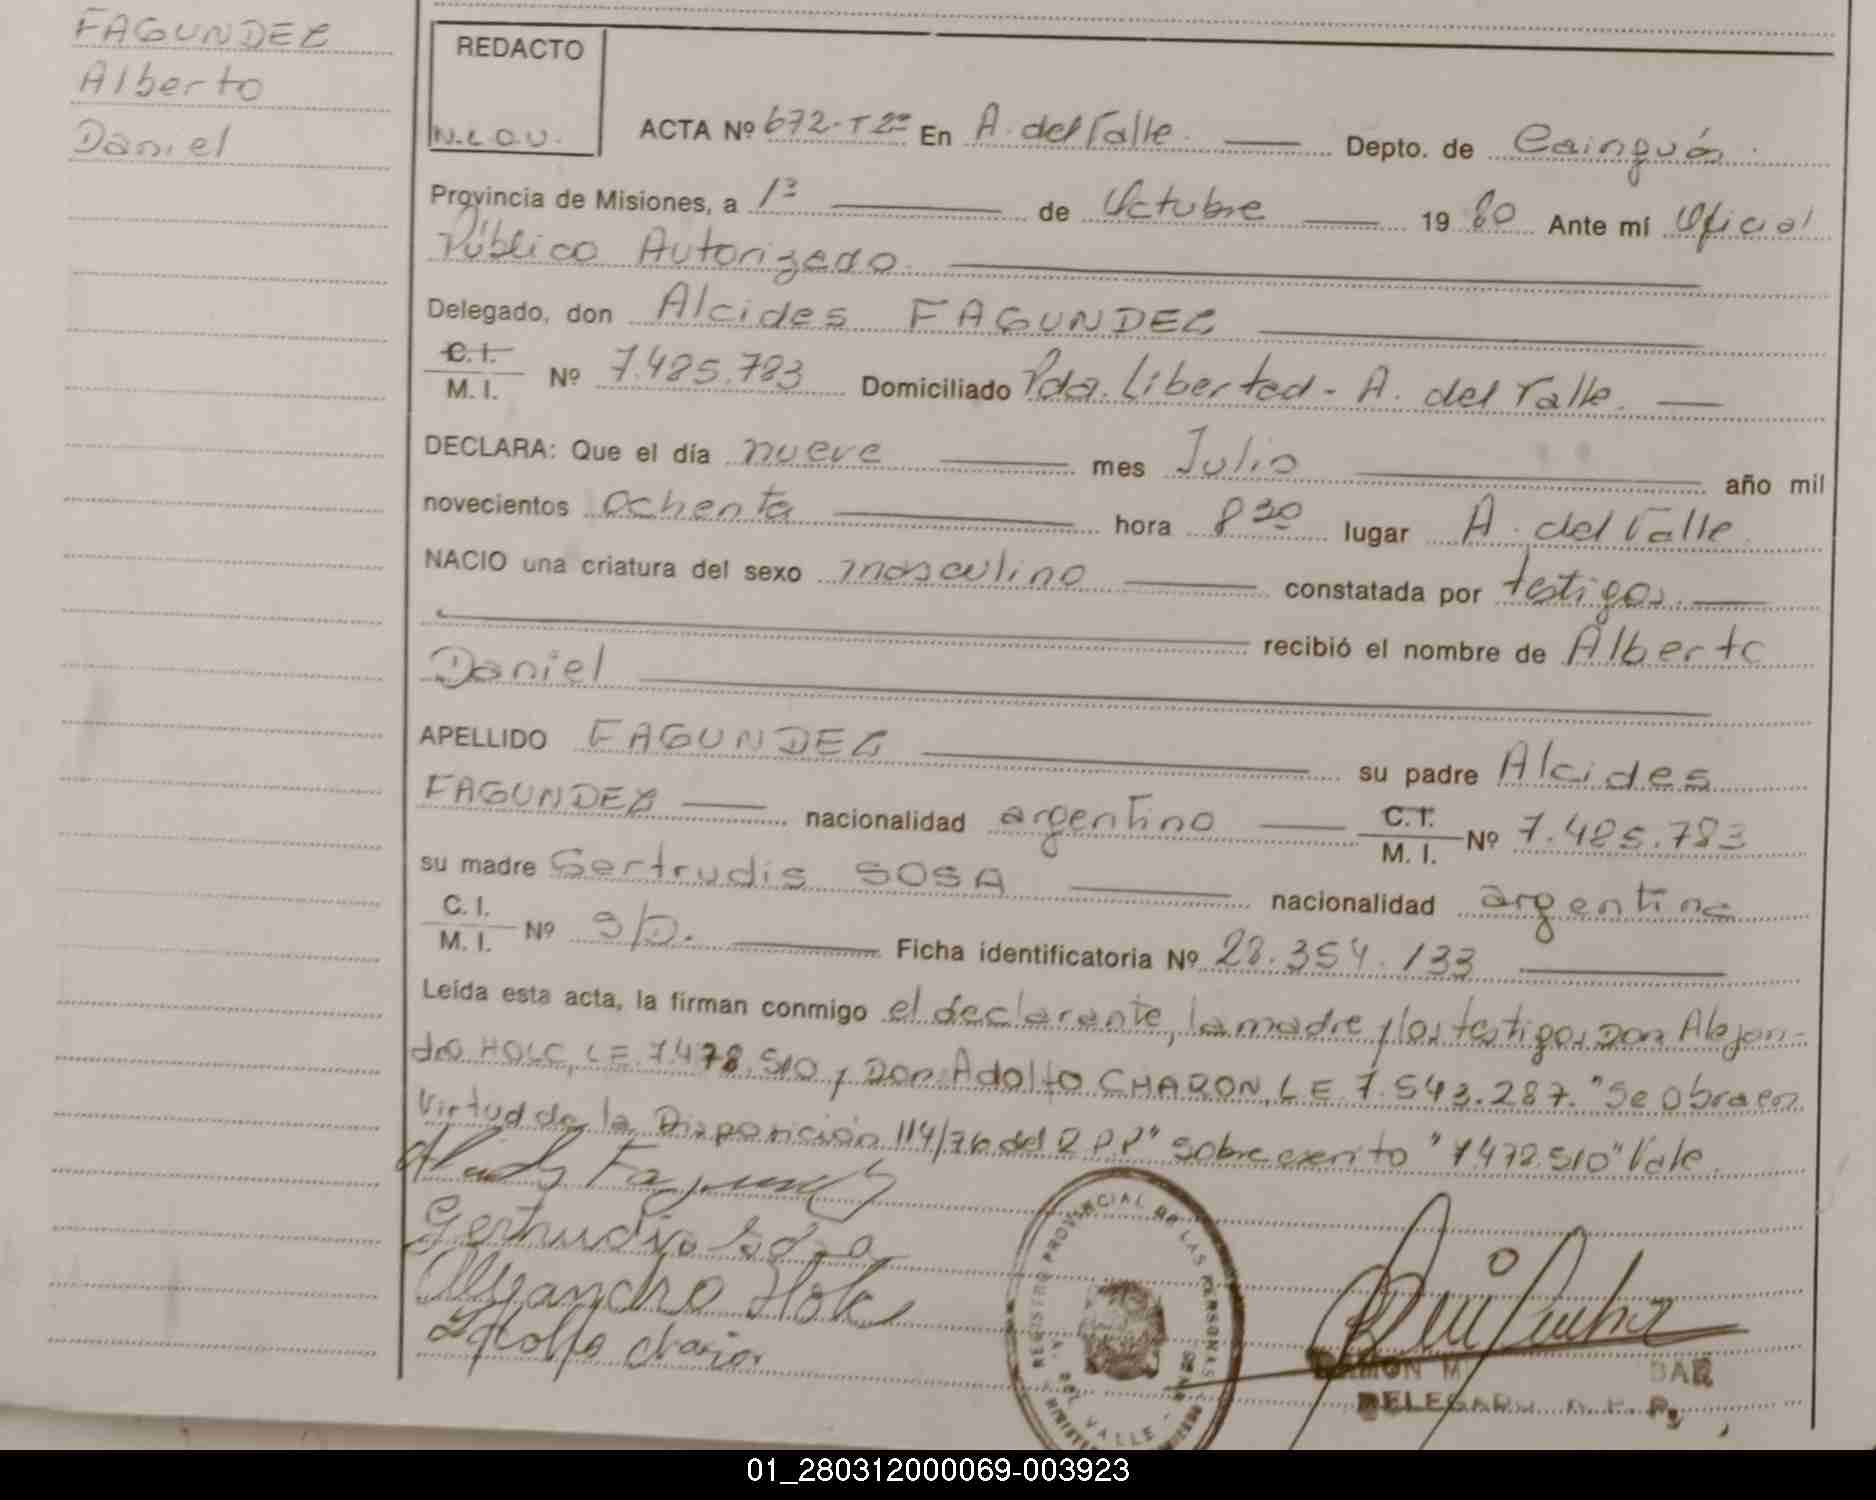 FAGUNDEZ
Alberto
Daniel
REDACTO
N.L.O.U.
ACTA Nº 672-T2º En A. del Valle. Depto. de Cainguás.
Provincia de Misiones, a 1º de Octubre 19 80 Ante mí Oficial
Público Autorizado.
Delegado, don Alcides FAGUNDEZ
C. I.
M. I. Nº 7.485.783 Domiciliado Pda. Libertad - A. del Valle.
DECLARA: Que el día nueve mes Julio año mil
novecientos ochenta hora 8 30 lugar A. del Valle
NACIO una criatura del sexo masculino constatada por testigos.
recibió el nombre de Alberto
Daniel
APELLIDO FAGUNDEZ su padre Alcides
FAGUNDEZ nacionalidad argentino C.I. M. I. Nº 7.485.783
su madre Gertrudis SOSA nacionalidad argentina
C. I.
M. I. Nº s/D. Ficha identificatoria Nº 28.354.133
Leída esta acta, la firman conmigo el declarante, la madre y los testigos Don Alejan-
dro HOLC, LE. 7.478.510 y Don Adolfo CHARON, LE 7.543.287. "Se obra en
Virtud de la Disposición 114/76 del R.P.P" Sobre escrito "7.478.510" Vale.
Gertrudis Sosa
Alejandro Holc
Adolfo charon
REGISTRO PROVINCIAL DE LAS PERSONAS
A. DEL VALLE
RAMON M BAR
DELEGADO R. P. P.
01_280312000069-003923